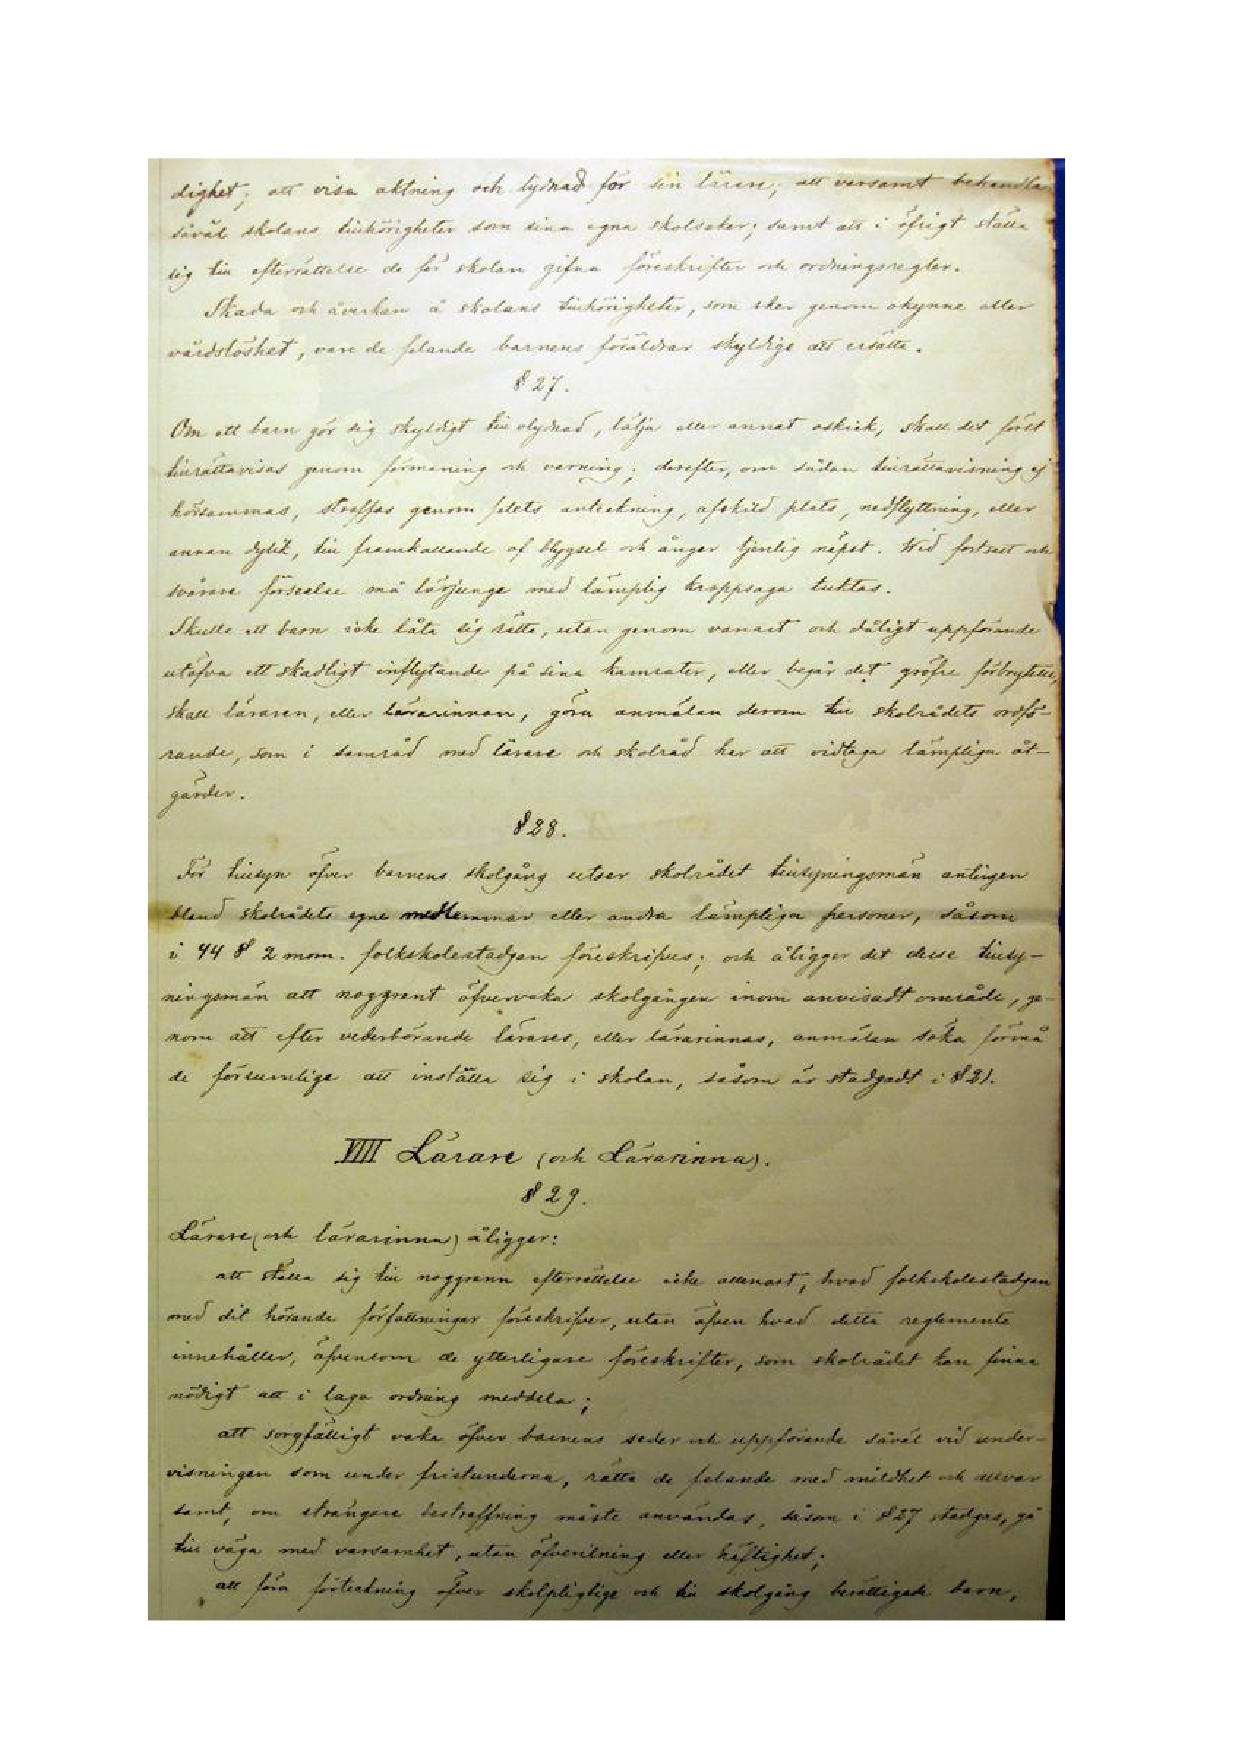 dighet; att visa aktning och lydnad för sin lärare; att varsamt behandla
såväl skolans tillhörigheter som sina egna skolsaker; samt att i öfrigt ställa
sig till efterrättelse de för skolan gifna föreskrifter och ordningsregler.
Skada och åverkan å skolans tillhörigheter, som sker genom okynne eller
vårdslöshet, vare de felande barnens föräldrar skyldige att ersätta.
§ 27.
Om ett barn gör sig skyldigt till olydnad, lätja eller annat oskick, skall det först
tillrättavisas genom förmaning och varning; derefter, om sådan tillrättavisning ej
hörsammas, straffas genom felets anteckning, afskild plats, nedflyttning, eller
annan dylik, till framkallande af blygsel och ånger tjenlig näpst. Wid fortsatt och
svårare förseelse må lärjunge med lämplig kroppsaga tuktas.
Skulle ett barn icke låta sig rätta, utan genom vanart och dåligt uppförande
utöfva ett skadligt inflytande på sina kamrater, eller begår det gröfre förbrytelse,
skall läraren, eller lärarinnan, göra anmälan derom till skolrådets ordfö-
rande, som i samråd med lärare och skolråd har att vidtaga lämpliga åt-
gärder.
§ 28.
För tillsyn öfver barnens skolgång utser skolrådet tillsyningsmän antingen
bland skolrådets egne medlemmar eller andra lämpliga personer, såsom
i 44 § 2 mom. folkskolestadgan föreskrifves; och åligger det desse tillsy-
ningsmän att noggrant öfvervaka skolgången inom anvisadt område, ge-
nom att efter vederbörande lärares, eller lärarinnas, anmälan söka förmå
de försumlige att inställa sig i skolan, såsom är stadgadt i § 21.
VIIII Lärare (och Lärarinna).
§ 29.
Lärare (och lärarinna) åligger:
att ställa sig till noggrann efterrättelse icke allenast, hvad folkskolestadgan
med dit hörande författningar föreskrifver, utan äfven hvad detta reglemente
innehåller, äfvensom de ytterligare föreskrifter, som skolrådet kan finna
nödigt att i laga ordning meddela;
att sorgfälligt vaka öfver barnens seder och uppförande såväl vid under-
visningen som under fristunderna, rätta de felande med mildhet och allvar
samt, om strängare bestraffning måste användas, såsom i § 27 stadgas, gå
till väga med varsamhet, utan öfverilning eller häftighet;
att föra förteckning öfver skolpligtige och till skolgång berättigade barn,